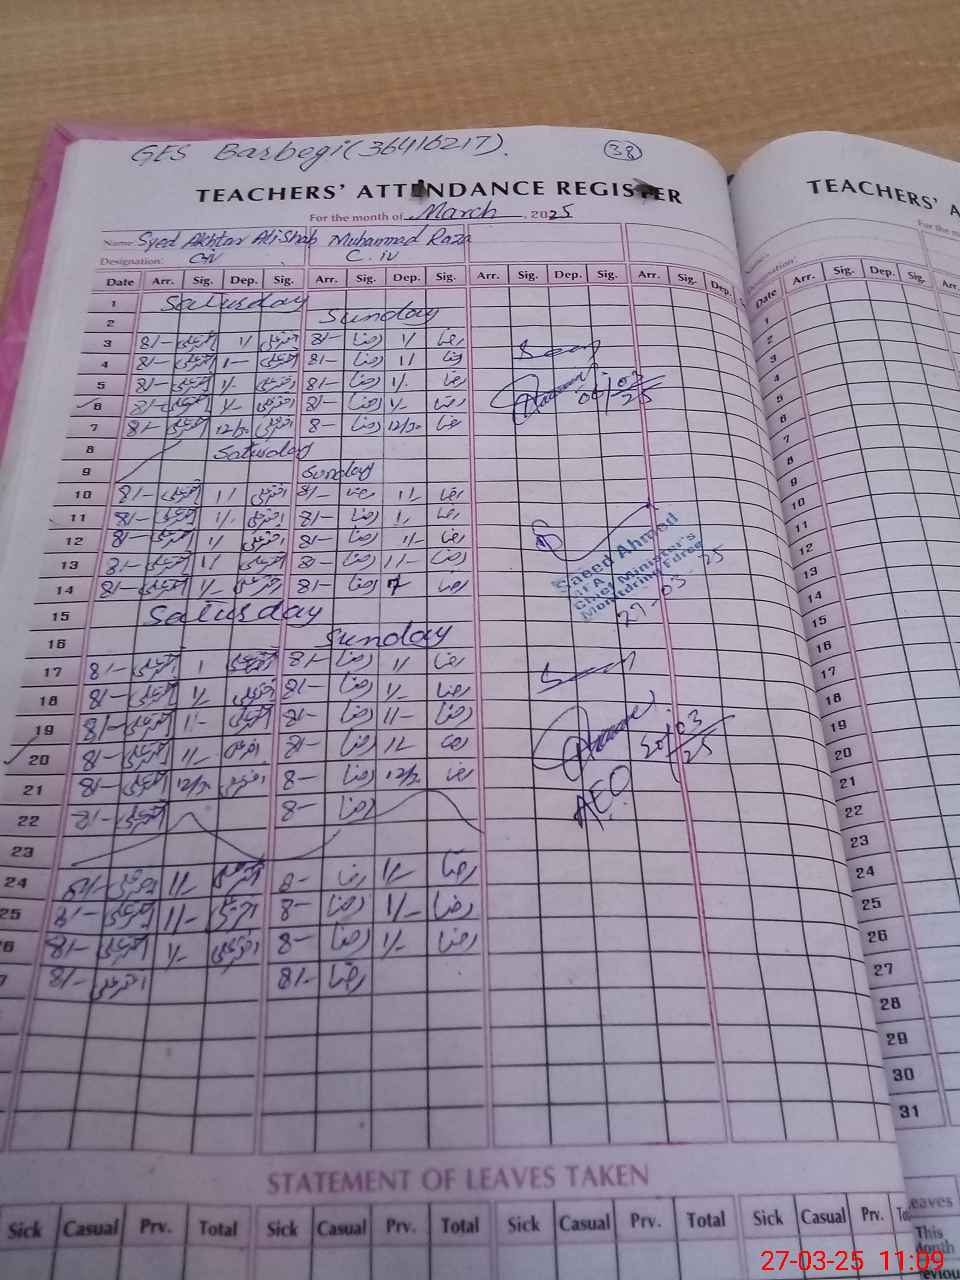 GES Barbegi (36416217). 38
TEACHERS' ATTENDANCE REGISTER
For the month of March, 2025
Name: Syed Akhtar Ali Shah Muhammad Raza
Designation: C.IV
Date Arr. Sig. Dep. Sig. Arr. Sig. Dep. Sig. Arr. Sig. Dep. Sig. Arr. Sig. Dep.
1 Saturday
2 Sunday
3 8/- اختر علی 1/ اختر علی 8/- رضا 1/ رضا
4 8/- اختر علی 1- اختر علی 8/- رضا 1/ رضا Seen
5 8/- اختر علی 1/. اختر علی 8/- رضا 1/. رضا
6 8/- اختر علی 1/- اختر علی 8/- رضا 1/- رضا 06/03/25
7 8/- اختر علی 12/30 اختر علی 8- رضا 12/30 رضا
8 Saturday
9 Sunday
10 8/- اختر علی 1/ اختر علی 8/- رضا 1/- رضا
11 8/- اختر علی 1/. اختر علی 8/- رضا 1/. رضا
12 8/- اختر علی 1/ اختر علی 8/- رضا 1/- رضا
13 8/- اختر علی 1/ اختر علی 8/- رضا 1/- رضا
14 8/- اختر علی 1/- اختر علی 8/- رضا رضا
Saeed Ahmed
Chief Minister's
Monitoring Force
27-03-25
15 Saturday
16 Sunday
17 8/- اختر علی 1 اختر علی 8/- رضا 1/ رضا Seen
18 8/- اختر علی 1/- اختر علی 8/- رضا 1/- رضا
19 8/- اختر علی 1/- اختر علی 8/- رضا 1/- رضا
20 8/- اختر علی 1/- اختر علی 8/- رضا 1/- رضا 20/03/25
21 8/- اختر علی 12/30 اختر علی 8- رضا 12/30 رضا AEO
22 8/- اختر علی 8- رضا
23
24 8/- اختر علی 1/- اختر علی 8- رضا 1/- رضا
25 8/- اختر علی 1/- اختر علی 8- رضا 1/- رضا
6 8/- اختر علی 1/- اختر علی 8- رضا 1/- رضا
7 8/- اختر علی 8/- رضا
STATEMENT OF LEAVES TAKEN
Sick Casual Prv. Total Sick Casual Prv. Total Sick Casual Prv. Total Sick Casual Prv.
TEACHERS' A
For the m
Date Arr. Sig. Dep. Sig.
1
2
3
4
5
6
7
8
9
10
11
12
13
14
15
16
17
18
19
20
21
22
23
24
25
26
27
28
29
30
31
eaves
This
Month
27-03-25 11:09